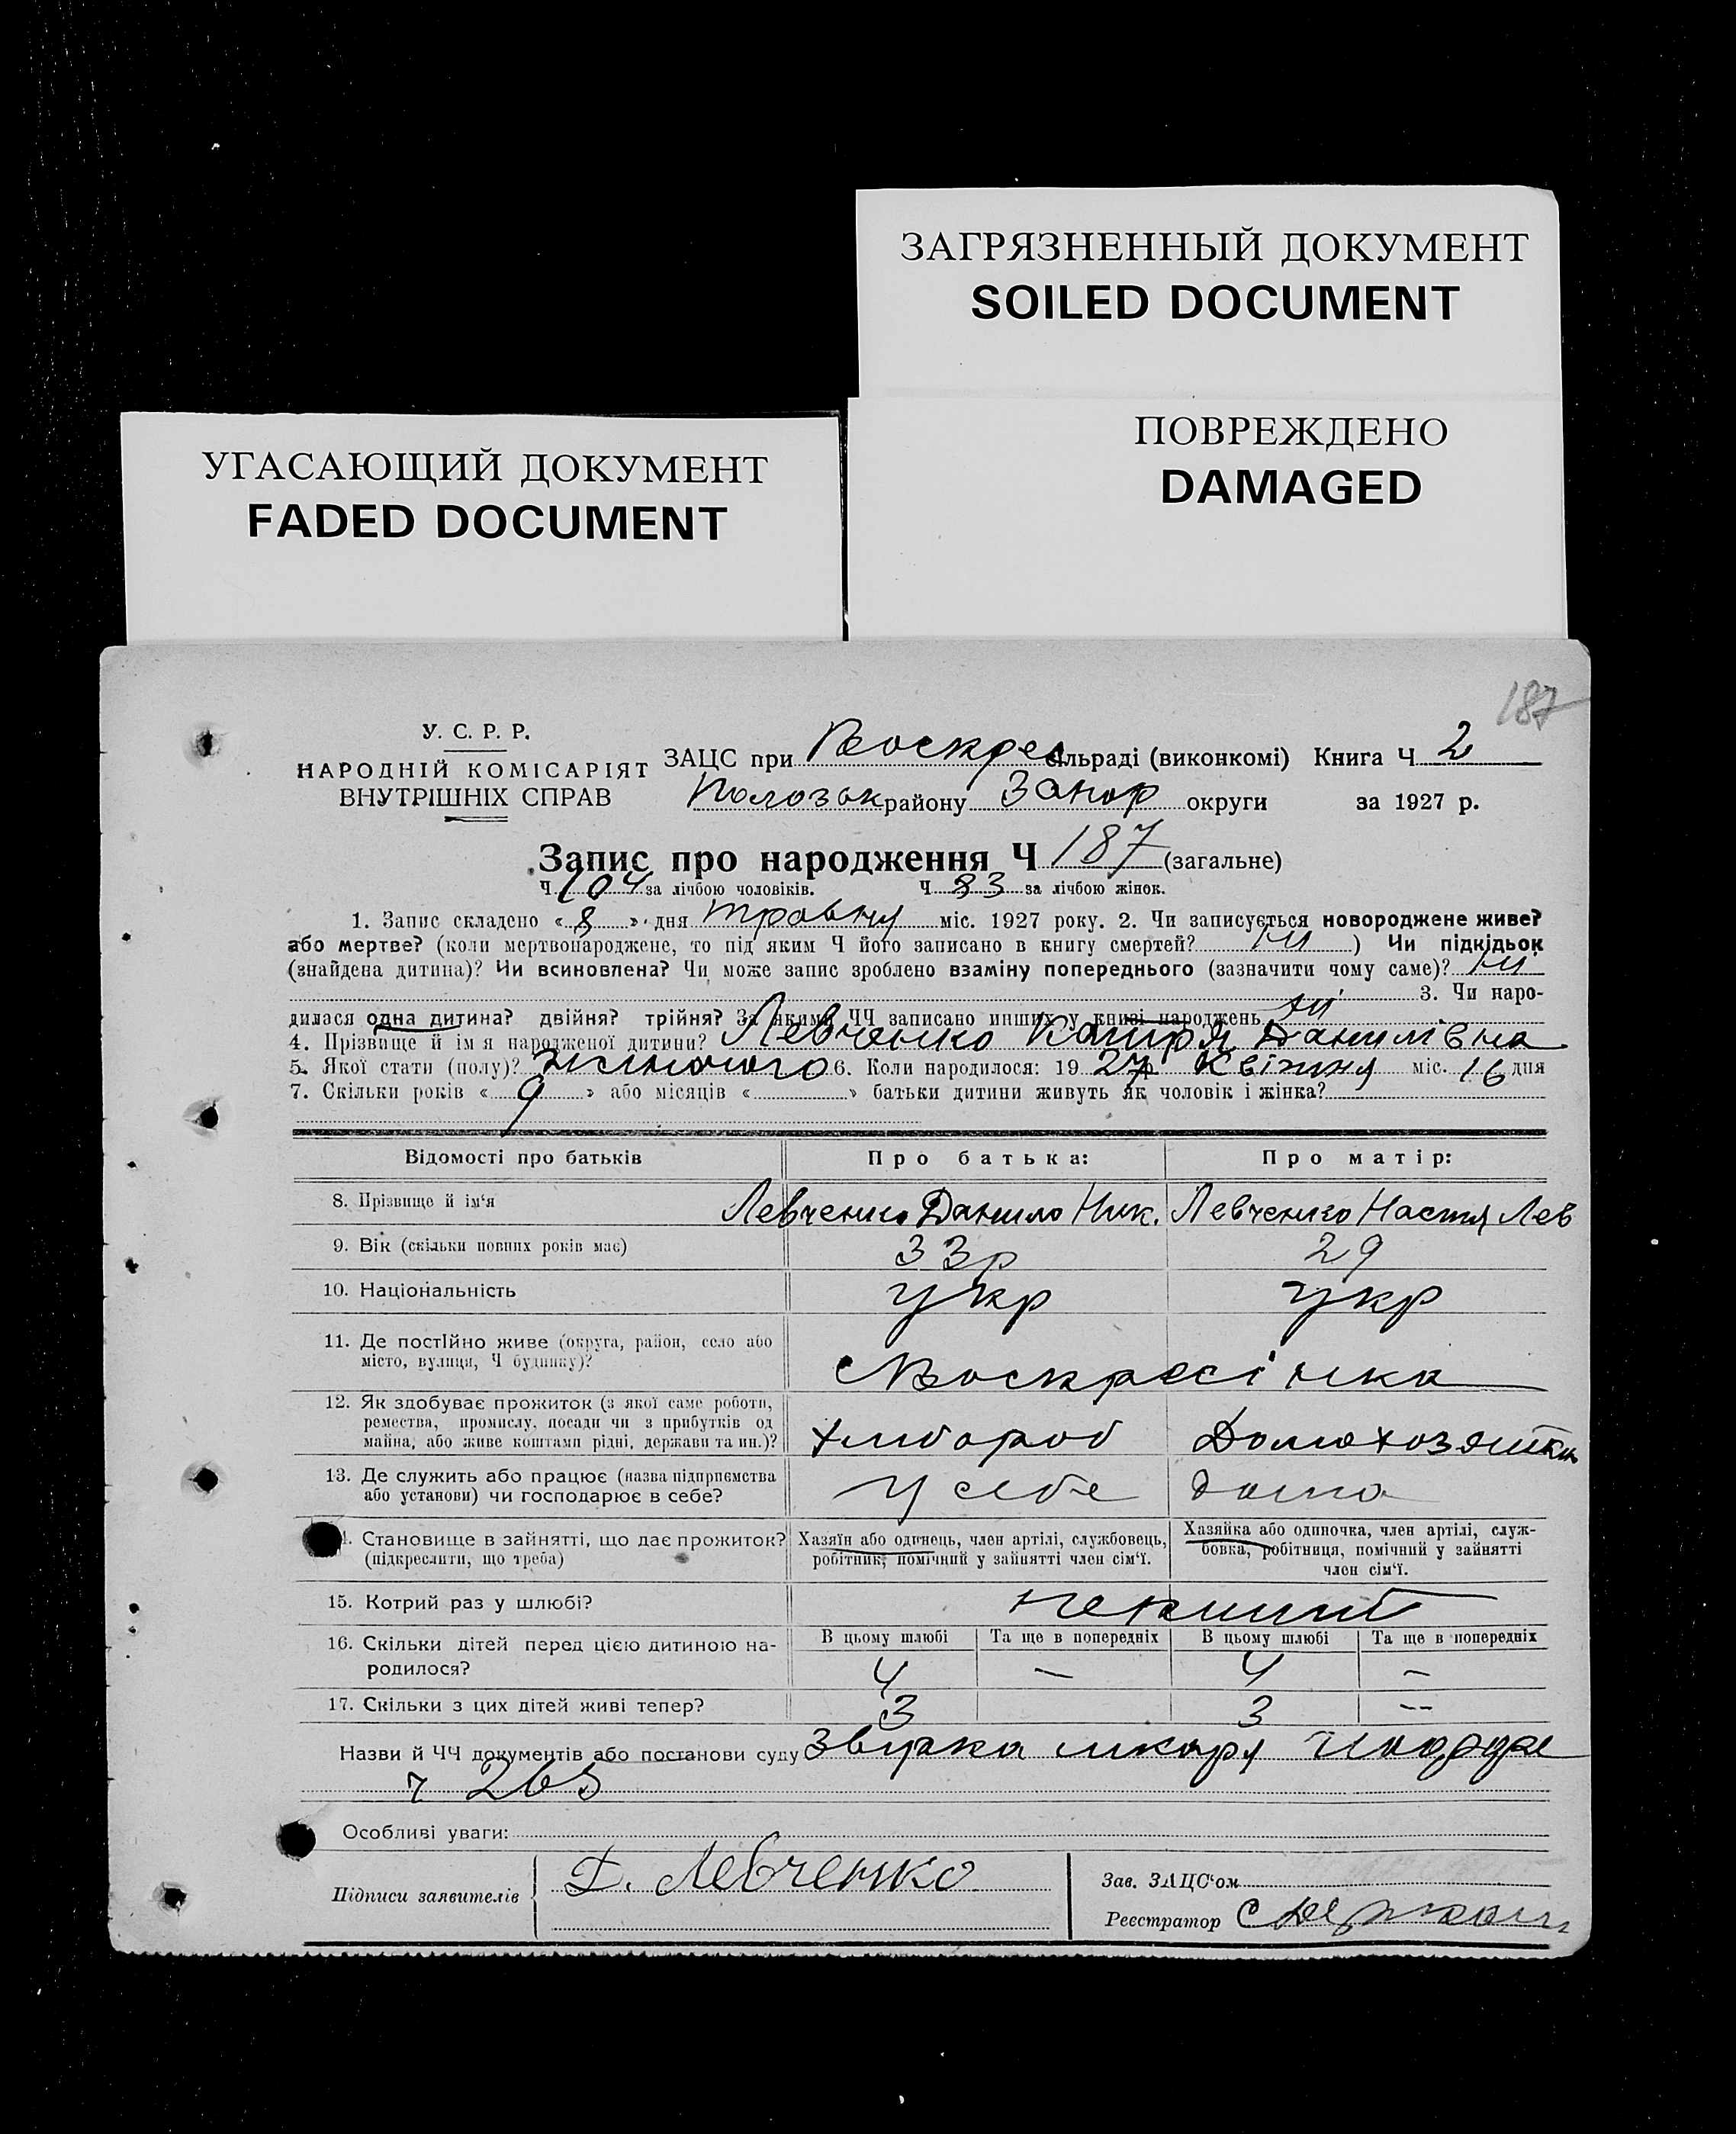 ЗАГРЯЗНЕННЫЙ ДОКУМЕНТ
SOILED DOCUMENT
ПОВРЕЖДЕНО
DAMAGED
УГАСАЮЩИЙ ДОКУМЕНТ
FADED DOCUMENT
187
У. С. Р. Р.
НАРОДНІЙ КОМІСАРІЯТ
ВНУТРІШНІХ СПРАВ
ЗАЦС при Воскрес сільраді (виконкомі) Книга Ч 2
Пологськ району Запор округи за 1927 р.
Запис про народження Ч 187 (загальне)
Ч 104 за лічбою чоловіків. Ч 83 за лічбою жінок.
1. Запис складено « 8 » дня травня міс. 1927 року. 2. Чи записується новороджене живе?
або мертве? (коли мертвонароджене, то під яким Ч його записано в книгу смертей? ні ) Чи підкідьок
(знайдена дитина)? Чи всиновлена? Чи може запис зроблено взаміну попереднього (зазначити чому саме)? ні
3. Чи наро-
дилася одна дитина? двійня? трійня? За якими ЧЧ записано инших у книзі народжень ні
4. Прізвище й ім я народженої дитини? Левченко Катря Данилівна
5. Якої стати (полу)? жіночого 6. Коли народилося: 19 27р Квітня міс. 16 дня
7. Скільки років « 9 » або місяців « » батьки дитини живуть як чоловік і жінка?
Відомості про батьків Про батька: Про матір:
8. Прізвище й ім'я Левченко Данило Ник. Левченко Настя Лев
9. Вік (скільки повних років має) 33р 29
10. Національність укр укр
11. Де постійно живе (округа, район, село або
місто, вулиця, Ч будинку)? Воскресінка
12. Як здобуває прожиток (з якої саме роботи,
ремества, промислу, посади чи з прибутків од
майна, або живе коштами рідні, держави та ин.)? хлибороб Домохозяйка
13. Де служить або працює (назва підприємства
або установи) чи господарює в себе? У себе дома
Становище в зайнятті, що дає прожиток?
(підкреслити, що треба)
Хазяїн або одинець, член артілі, службовець,
робітник, помічний у зайнятті член сім'ї.
Хазяйка або одиночка, член артілі, служ-
бовка, робітниця, помічний у зайнятті
член сім'ї.
15. Котрий раз у шлюбі? перший
16. Скільки дітей перед цією дитиною на-
родилося?
В цьому шлюбі Та ще в попередніх В цьому шлюбі Та ще в попередніх
4 — 4 —
17. Скільки з цих дітей живі тепер? 3 3 --
Назви й ЧЧ документів або постанови суду
ч 265
Особливі уваги:
Підписи заявителів Д. Левченко
Зав. ЗАЦС'ом
Реєстратор